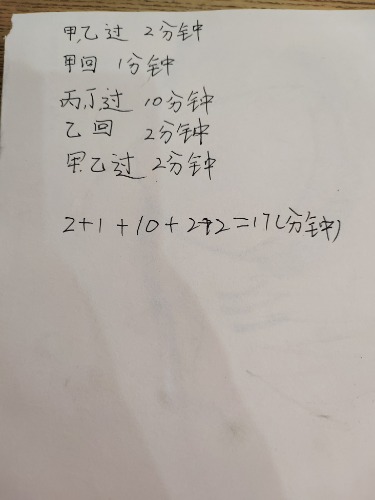 甲,乙过 2分钟
甲回 1分钟
丙,丁过 10分钟
乙回 2分钟
甲,乙过 2分钟
2+1+10+2+2=17(分钟)